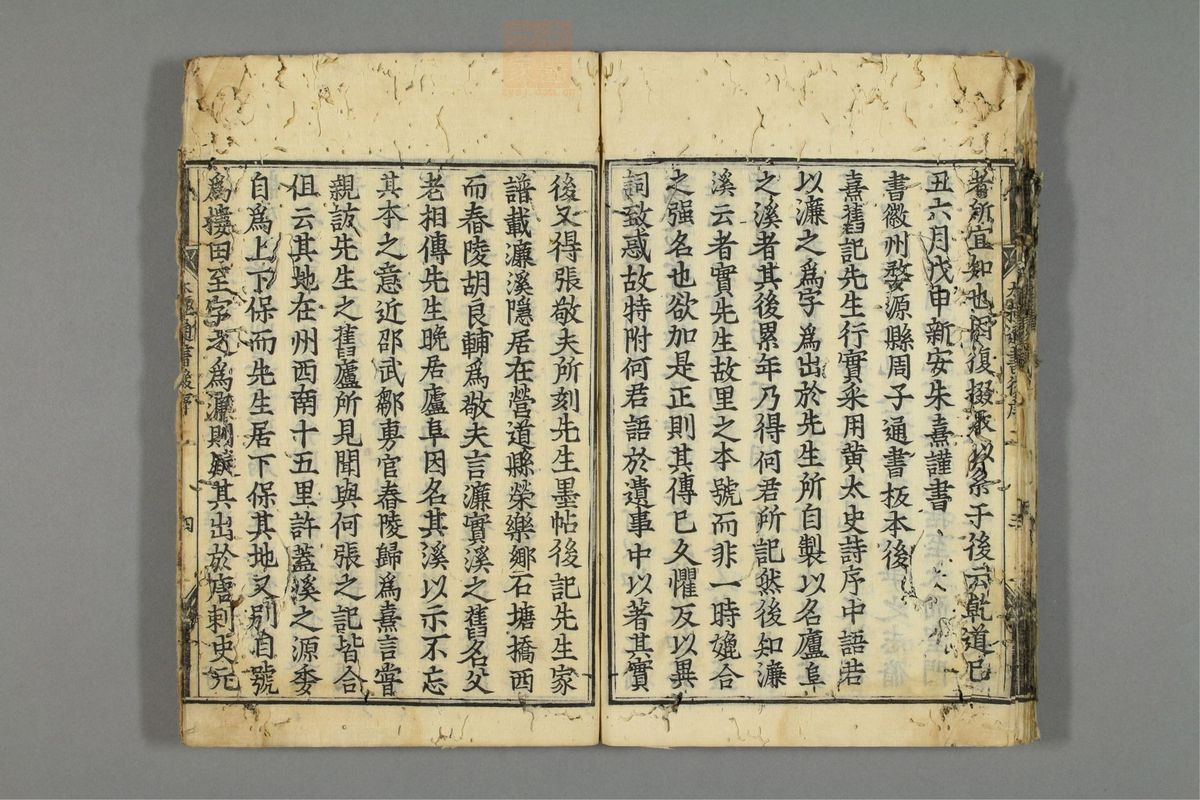 者所宜知也因復掇取以系于後云乾道己
丑六月戊申新安朱熹謹書
書徽州婺源縣周子通書板本後
熹舊記先生行實采用黄太史詩序中語若
以濂之爲字爲出於先生所自製以名廬阜
之溪者其後累年乃得何君所記然後知濂
溪云者實先生故里之本號而非一時媲合
之强名也欲加是正則其傳已久懼反以異
詞致惑故特附何君語於遺事中以著其實
後又得張敬夫所刻先生墨帖後記先生家
譜載濂溪隱居在營道縣榮樂鄉石塘橋西
而舂陵胡良輔爲敬夫言濂實溪之舊名父
老相傳先生晚居廬阜因名其溪以示不忘
其本之意近邵武鄒旉官舂陵歸爲熹言嘗
親訪先生之舊廬所見聞與何張之記皆合
但云其地在州西南十五里許蓋溪之源委
自爲上下保而先生居下保其地又别自號
爲樓田至字之爲濂則疑其出於唐刺史元
太極通書後序
四